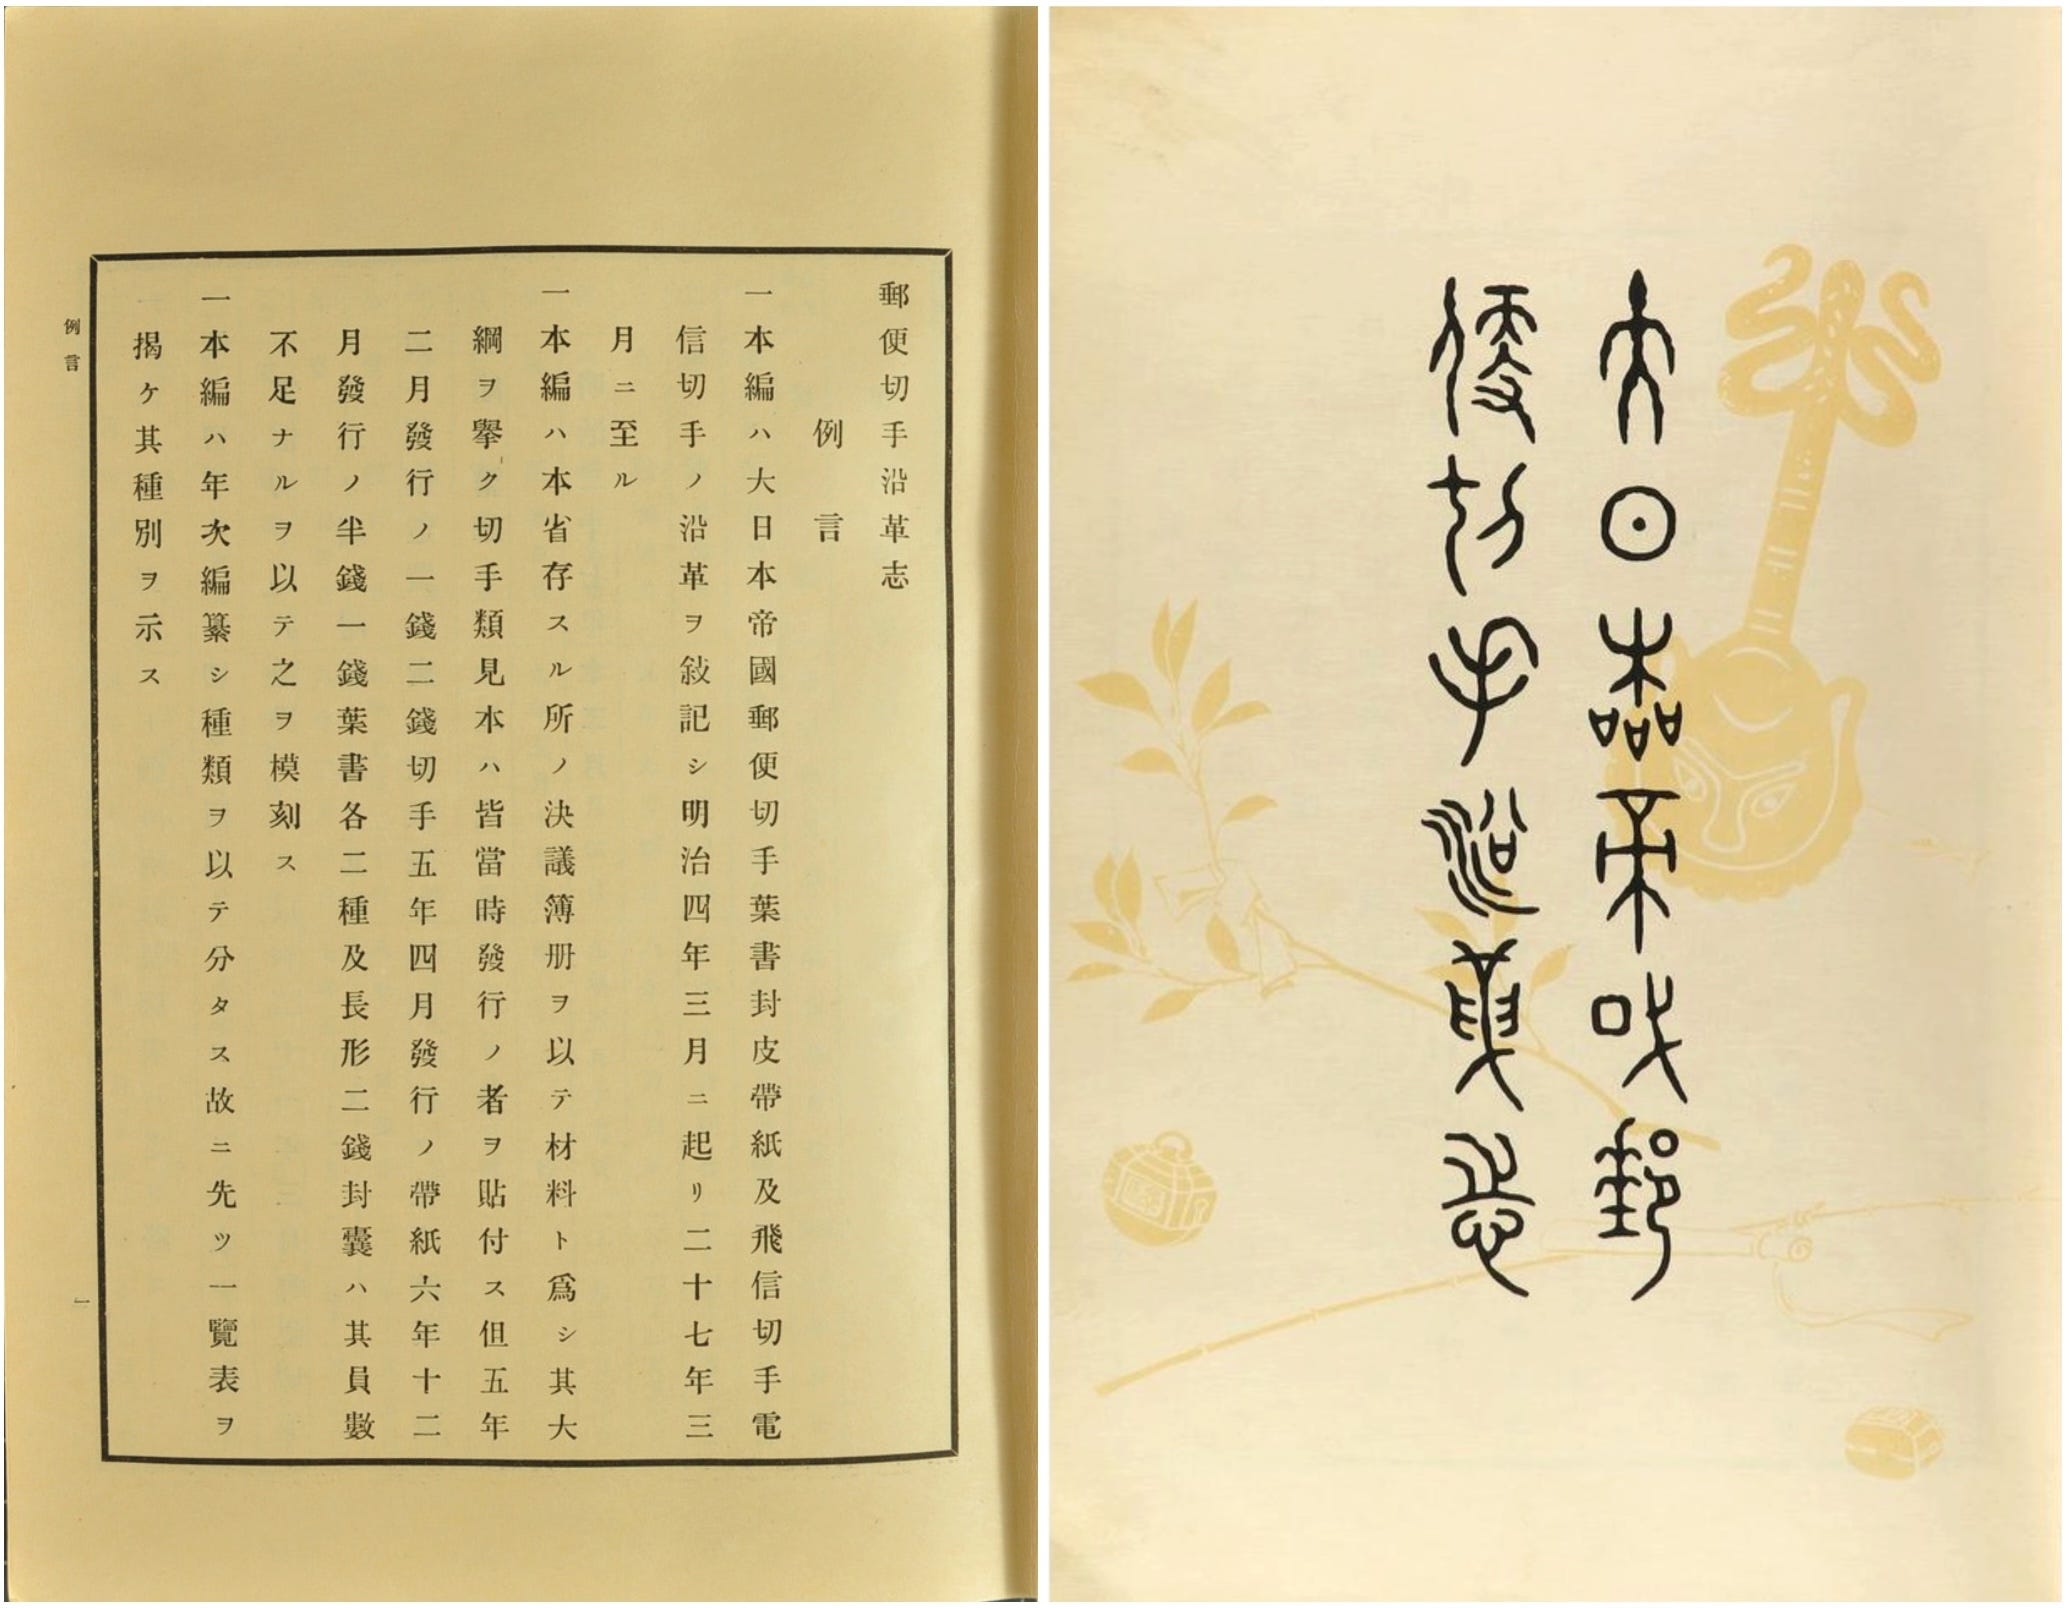 大日本帝國郵
便切手沿革志
郵便切手沿革志
例言
一本編ハ大日本帝國郵便切手葉書封皮帶紙及飛信切手電
信切手ノ沿革ヲ敍記シ明治四年三月ニ起リ二十七年三
月ニ至ル
一本編ハ本省存スル所ノ決議簿册ヲ以テ材料ト爲シ其大
綱ヲ擧ク切手類見本ハ皆當時發行ノ者ヲ貼付ス但五年
二月發行ノ一錢二錢切手五年四月發行ノ帶紙六年十二
月發行ノ半錢一錢葉書各二種及長形二錢封囊ハ其員數
不足ナルヲ以テ之ヲ模刻ス
一本編ハ年次編纂シ種類ヲ以テ分タス故ニ先ツ一覽表ヲ
揭ケ其種別ヲ示ス
例言
一